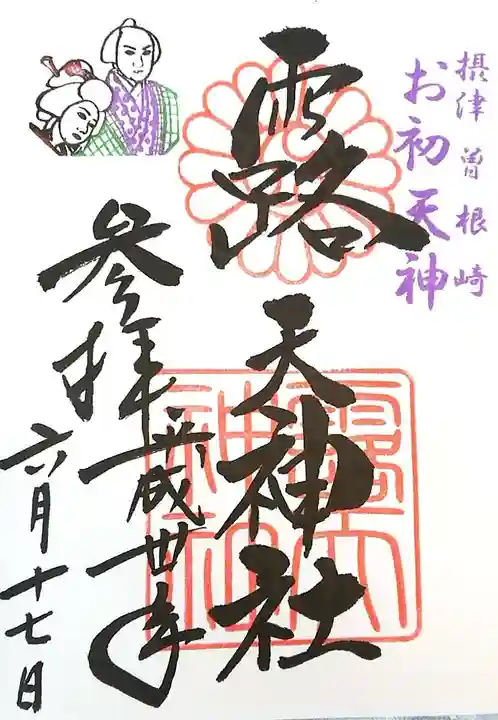 摂津曽根崎
お初天神
露天神社
露天
神社
参拝平成丗年
六月十七日